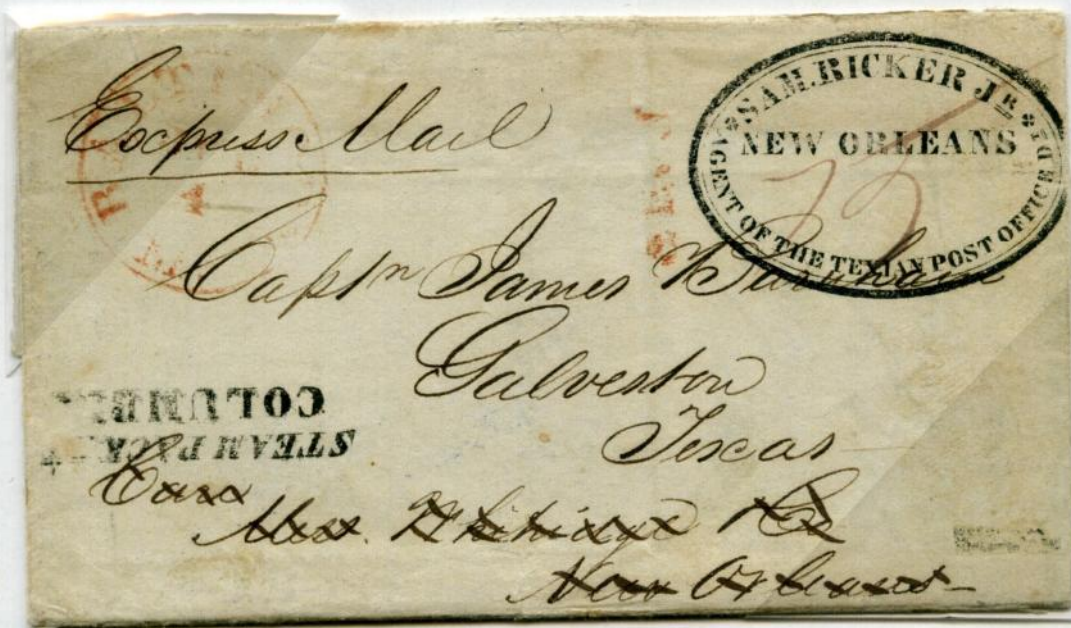 Express Mail
SAM. RICKER JR.
NEW ORLEANS
AGENT OF THE TEXIAN POST OFFICE DP.
75
Captn James
Galveston
Texas
STEAM PACKET
COLUMBIA
Care
Mess.
New Orleans